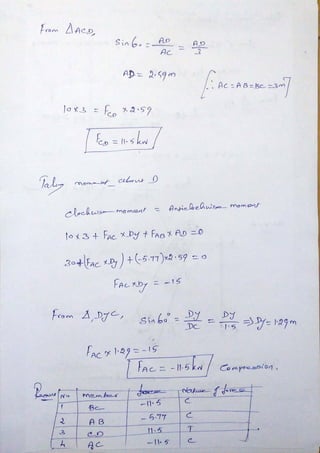 From ΔACD,
Sin60 = AD/AC = AD/3
AD = 2.59m
[∵ AC = AB = BC = 3m]
10×3 = F_CD × 2.59
F_CD = 11.5 kN
Taking moment about D
clockwise moment = Anticlockwise moment
10×3 + F_AC × Dy + F_AB × AD = 0
30+(F_AC × Dy) + (-5.77)×2.59 = 0
F_AC × Dy = -15
From Δ DyC, Sin60° = Dy/DC = Dy/1.5 ⇒ Dy = 1.29m
F_AC × 1.29 = -15
F_AC = -11.5 kN Compression.
No member force Nature of force
1 BC -11.5 C
2 AB -5.77 C
3 CD 11.5 T
4 AC -11.5 C